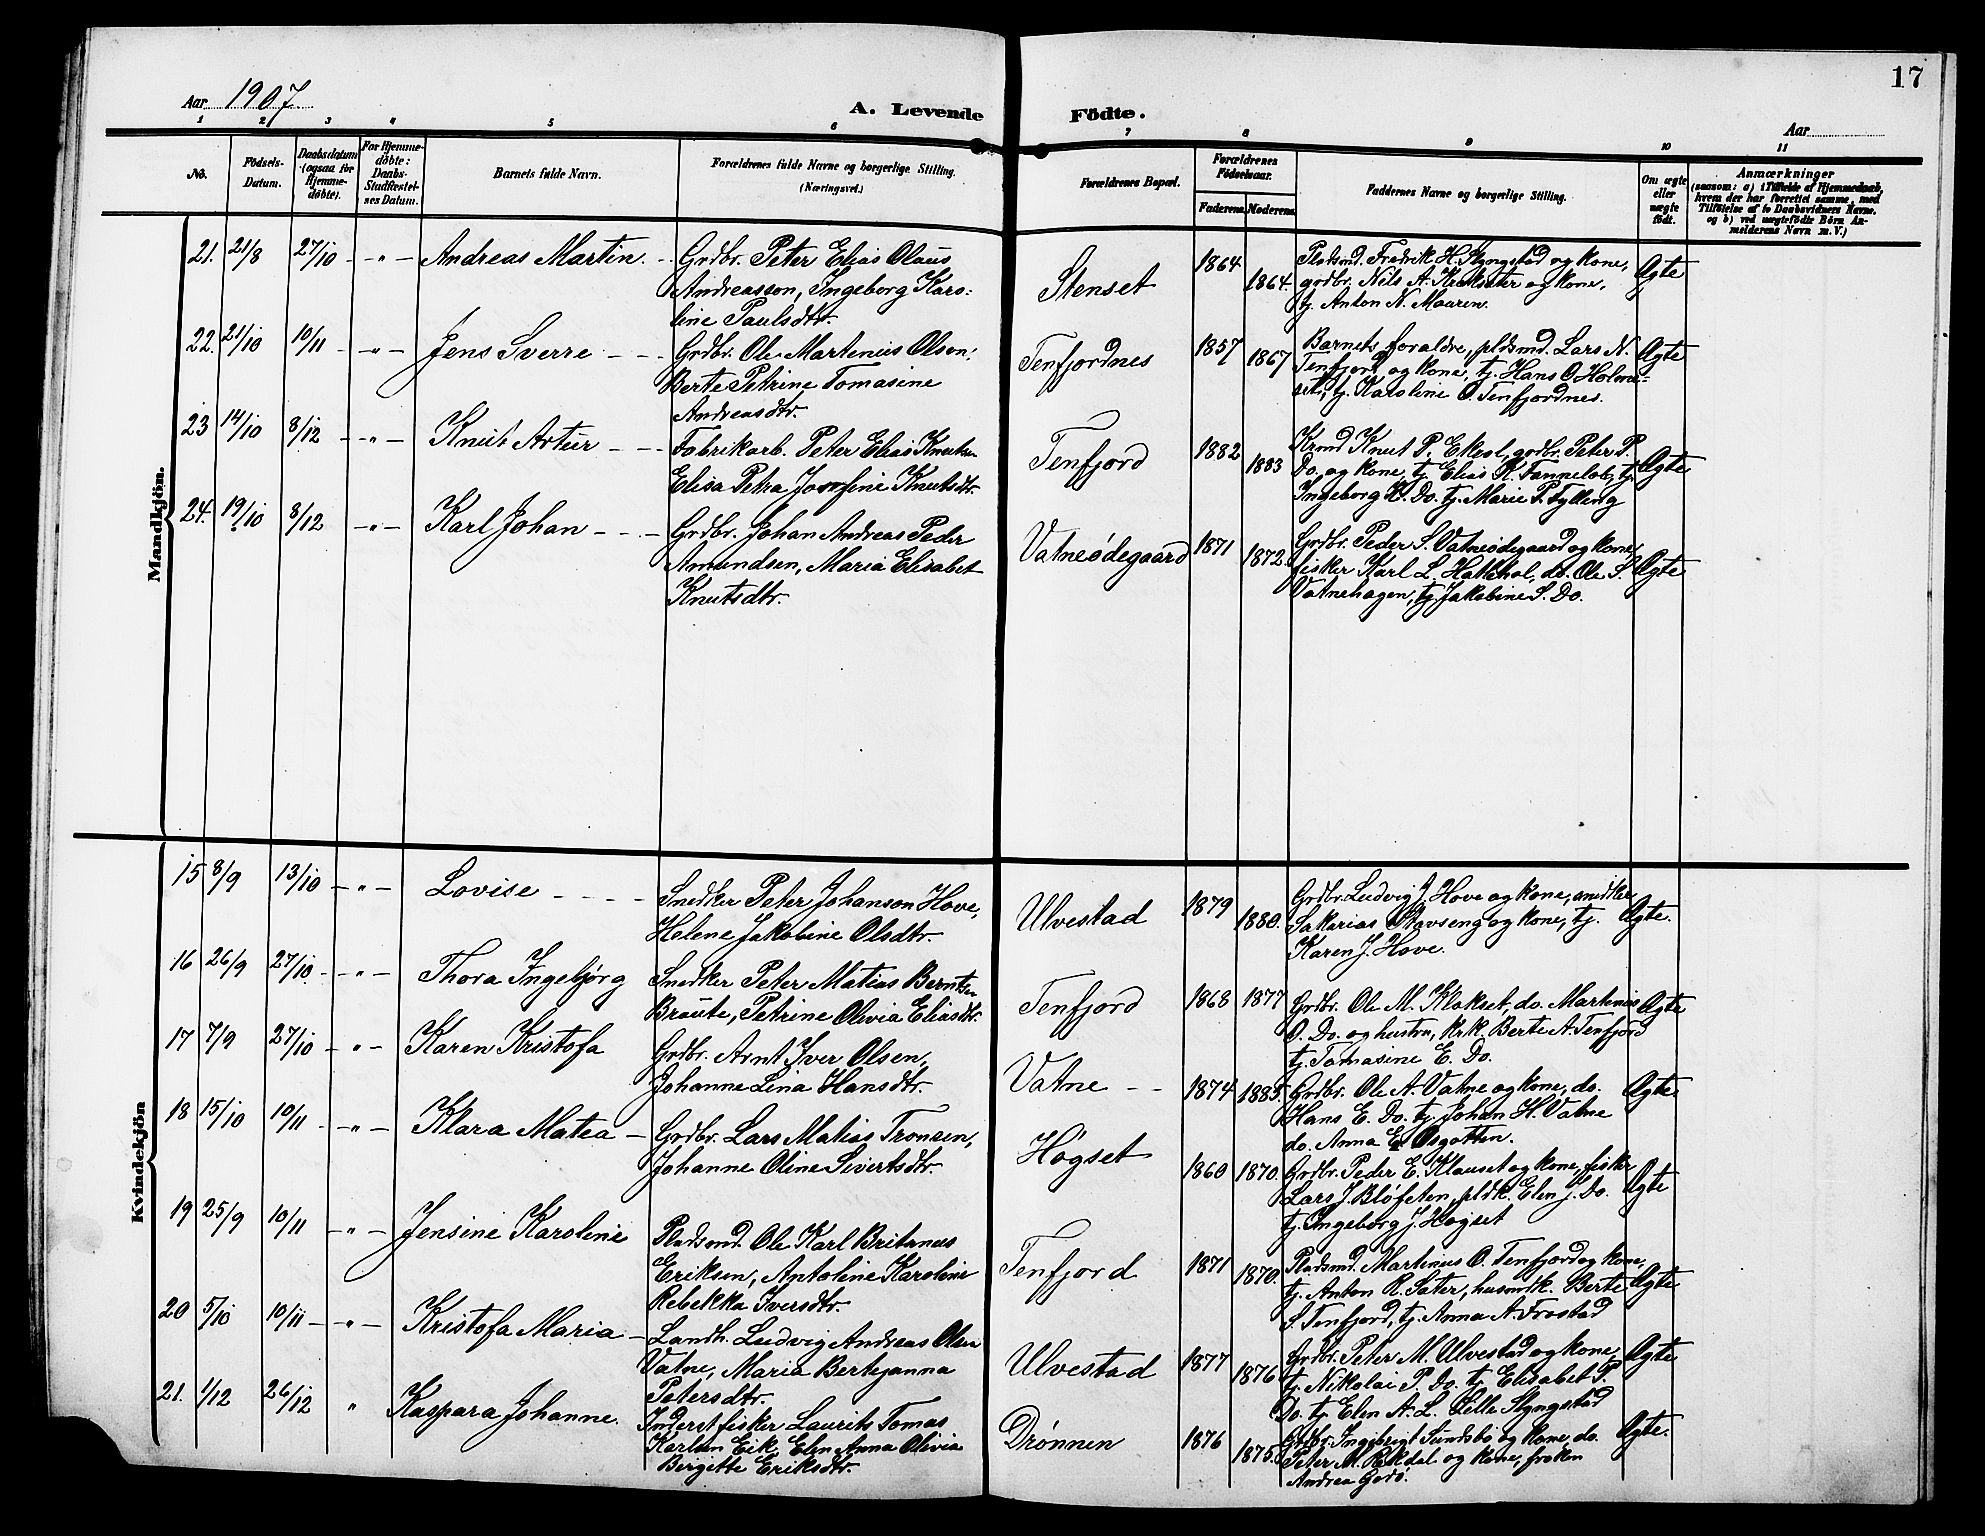 17
Aar 1907.
A. Levende Födte.
Aar
1 2 3 4 5 6 7 8 9 10 11
No.
Födsels-Datum.
Daabsdatum (ogsaa for Hjemmedöbte).
For Hjemmedöbte: Daabs-Stadfæstelses Datum.
Barnets fulde Navn.
Forældrenes fulde Navne og borgerlige Stilling. (Næringsvei.)
Forældrenes Bopæl.
Forældrenes Födselsaar.
Faderens. Moderens.
Faddernes Navne og borgerlige Stilling.
Om ægte eller uægte födt.
Anmærkninger
(saasom: a) i Tilfælde af Hjemmedaab, hvem der har forrettet samme, med Tilföielse af to Daabsvidners Navne. og b) ved uægtefödte Börn Anmelderens Navn m. V.)
Mandkjön.
21. 21/8 27/10 - " - Andreas Martin - - Grdbr. Peter Elias Olaus
Andreasson, Ingeborg Karo-
line Paulsdtr.
Stenset 1864 1864.
Pladsmd. Fredrik H. Slyngstad og kone,
grdbr. Nils A. Kroksæter og kone,
tj. Anton N. Mauren.
Ægte
22. 21/10 10/11 - " - Jens Sverre - - - Grdbr. Ole Martenius Olsen,
Berte Petrine Tomasine
Andreasdtr.
Tenfjordnes 1857 1867
Barnets foraldre, pldsmd. Lars N.
Tenfjord og kone, tj. Hans O. Holme-
set, tj. Karoline O. Tenfjordnes.
Ægte
23 14/10 8/12 - " - Knut Artur - - - Fabrikarb. Peter Elias Knutsen
Elisa Petra Josefine Knutsdtr.
Tenfjord 1882 1883
Krmd Knut P. Ekesl, grdbr. Peter P.
Do. og kone, tj. Elias K. Tommelob, tj.
Ingeborg K. Do. tj. Marie P. Fylling
Ægte
24. 19/10 8/12 - " - Karl Johan - - - Grdbr. Johan Andreas Peder
Amundsen, Maria Elisabet
Knutsdtr.
Vatneödegaard 1871 1872.
Grdbr. Peder S. Vatneödegaard og kone,
fisker Karl L. Hattehol, do. Ole S.
Vatnehagen, tj. Jakobine S. Do.
Ægte
Kvindekjön
15 8/9 13/10 - " - Lovise - - - - Snedker Peter Johanson Hove,
Helene Jakobine Olsdtr.
Ulvestad 1879 1880.
Grdbr. Ludvig J. Hove og kone, snedker
Sakarias Stavseng og kone, tj.
Karen J. Hove.
Ægte.
16 26/9 27/10. - " - Thora Ingebjørg Snedker Peter Matias Berntsen
Braute, Petrine Olivia Eliasdtr.
Tenfjord 1868 1877
Grdbr. Ole M. Klokset, do. Martenius
O. Do. og hustru, krk. Berte A. Tenfjord
tj. Tomasine E. Do.
Ægte
17 7/9 27/10 - " - Karen Kristofa Grdbr. Arnt Iver Olsen,
Johanne Lina Hansdtr.
Vatne - - 1874 1885.
Grdbr. Ole A. Vatne og kone, do.
Hans E. Do. tj. Johan H. Vatne
do. Anna E. Osgotten.
Ægte
18 15/10 10/11 - " - Klara Matea - Grdbr. Lars Matias Tronsen,
Johanne Oline Sivertsdtr.
Høgset 1860 1870.
Grdbr. Peder E. Klauset og kone, fisker
Lars J. Bløfeten, pldk. Elen J. Do.
tj. Ingeborg J. Høgset
Ægte
19 25/9 10/11 - " - Jensine Karoline Pladsmd. Ole Karl Britanus
Eriksen, Antoline Karoline
Rebekka Iversdtr.
Tenfjord 1871 1870.
Pladsmd. Martinus O. Tenfjord og kone,
tj. Anton R. Sæter, husmdk. Berte
S. Tenfjord, tj. Anna A. Frostad
Ægte
20 5/10 10/11 - " - Kristofa Maria - Landh. Ludvig Andreas Olsen
Vatne, Maria Bertejanna
Petersdtr.
Ulvestad 1877 1876
Grdbr. Peter M. Ulvestad og kone,
tj. Nikolai P. Do. tj. Elisabet P.
Do. tj. Elen A. L. Lille Slyngstad
Ægte
21. 1/12 26/12 " Kaspara Johanne. Inderst fisker Laurits Tomas
Karlsen Eik, Elen Anna Olivia
Birgitte Eriksdtr.
Drønnen 1876 1875.
Grdbr. Ingebrigt Sundsbö og kone, do.
Peter M. Rekdal og kone, frøken
Andrea Godö.
Ægte.